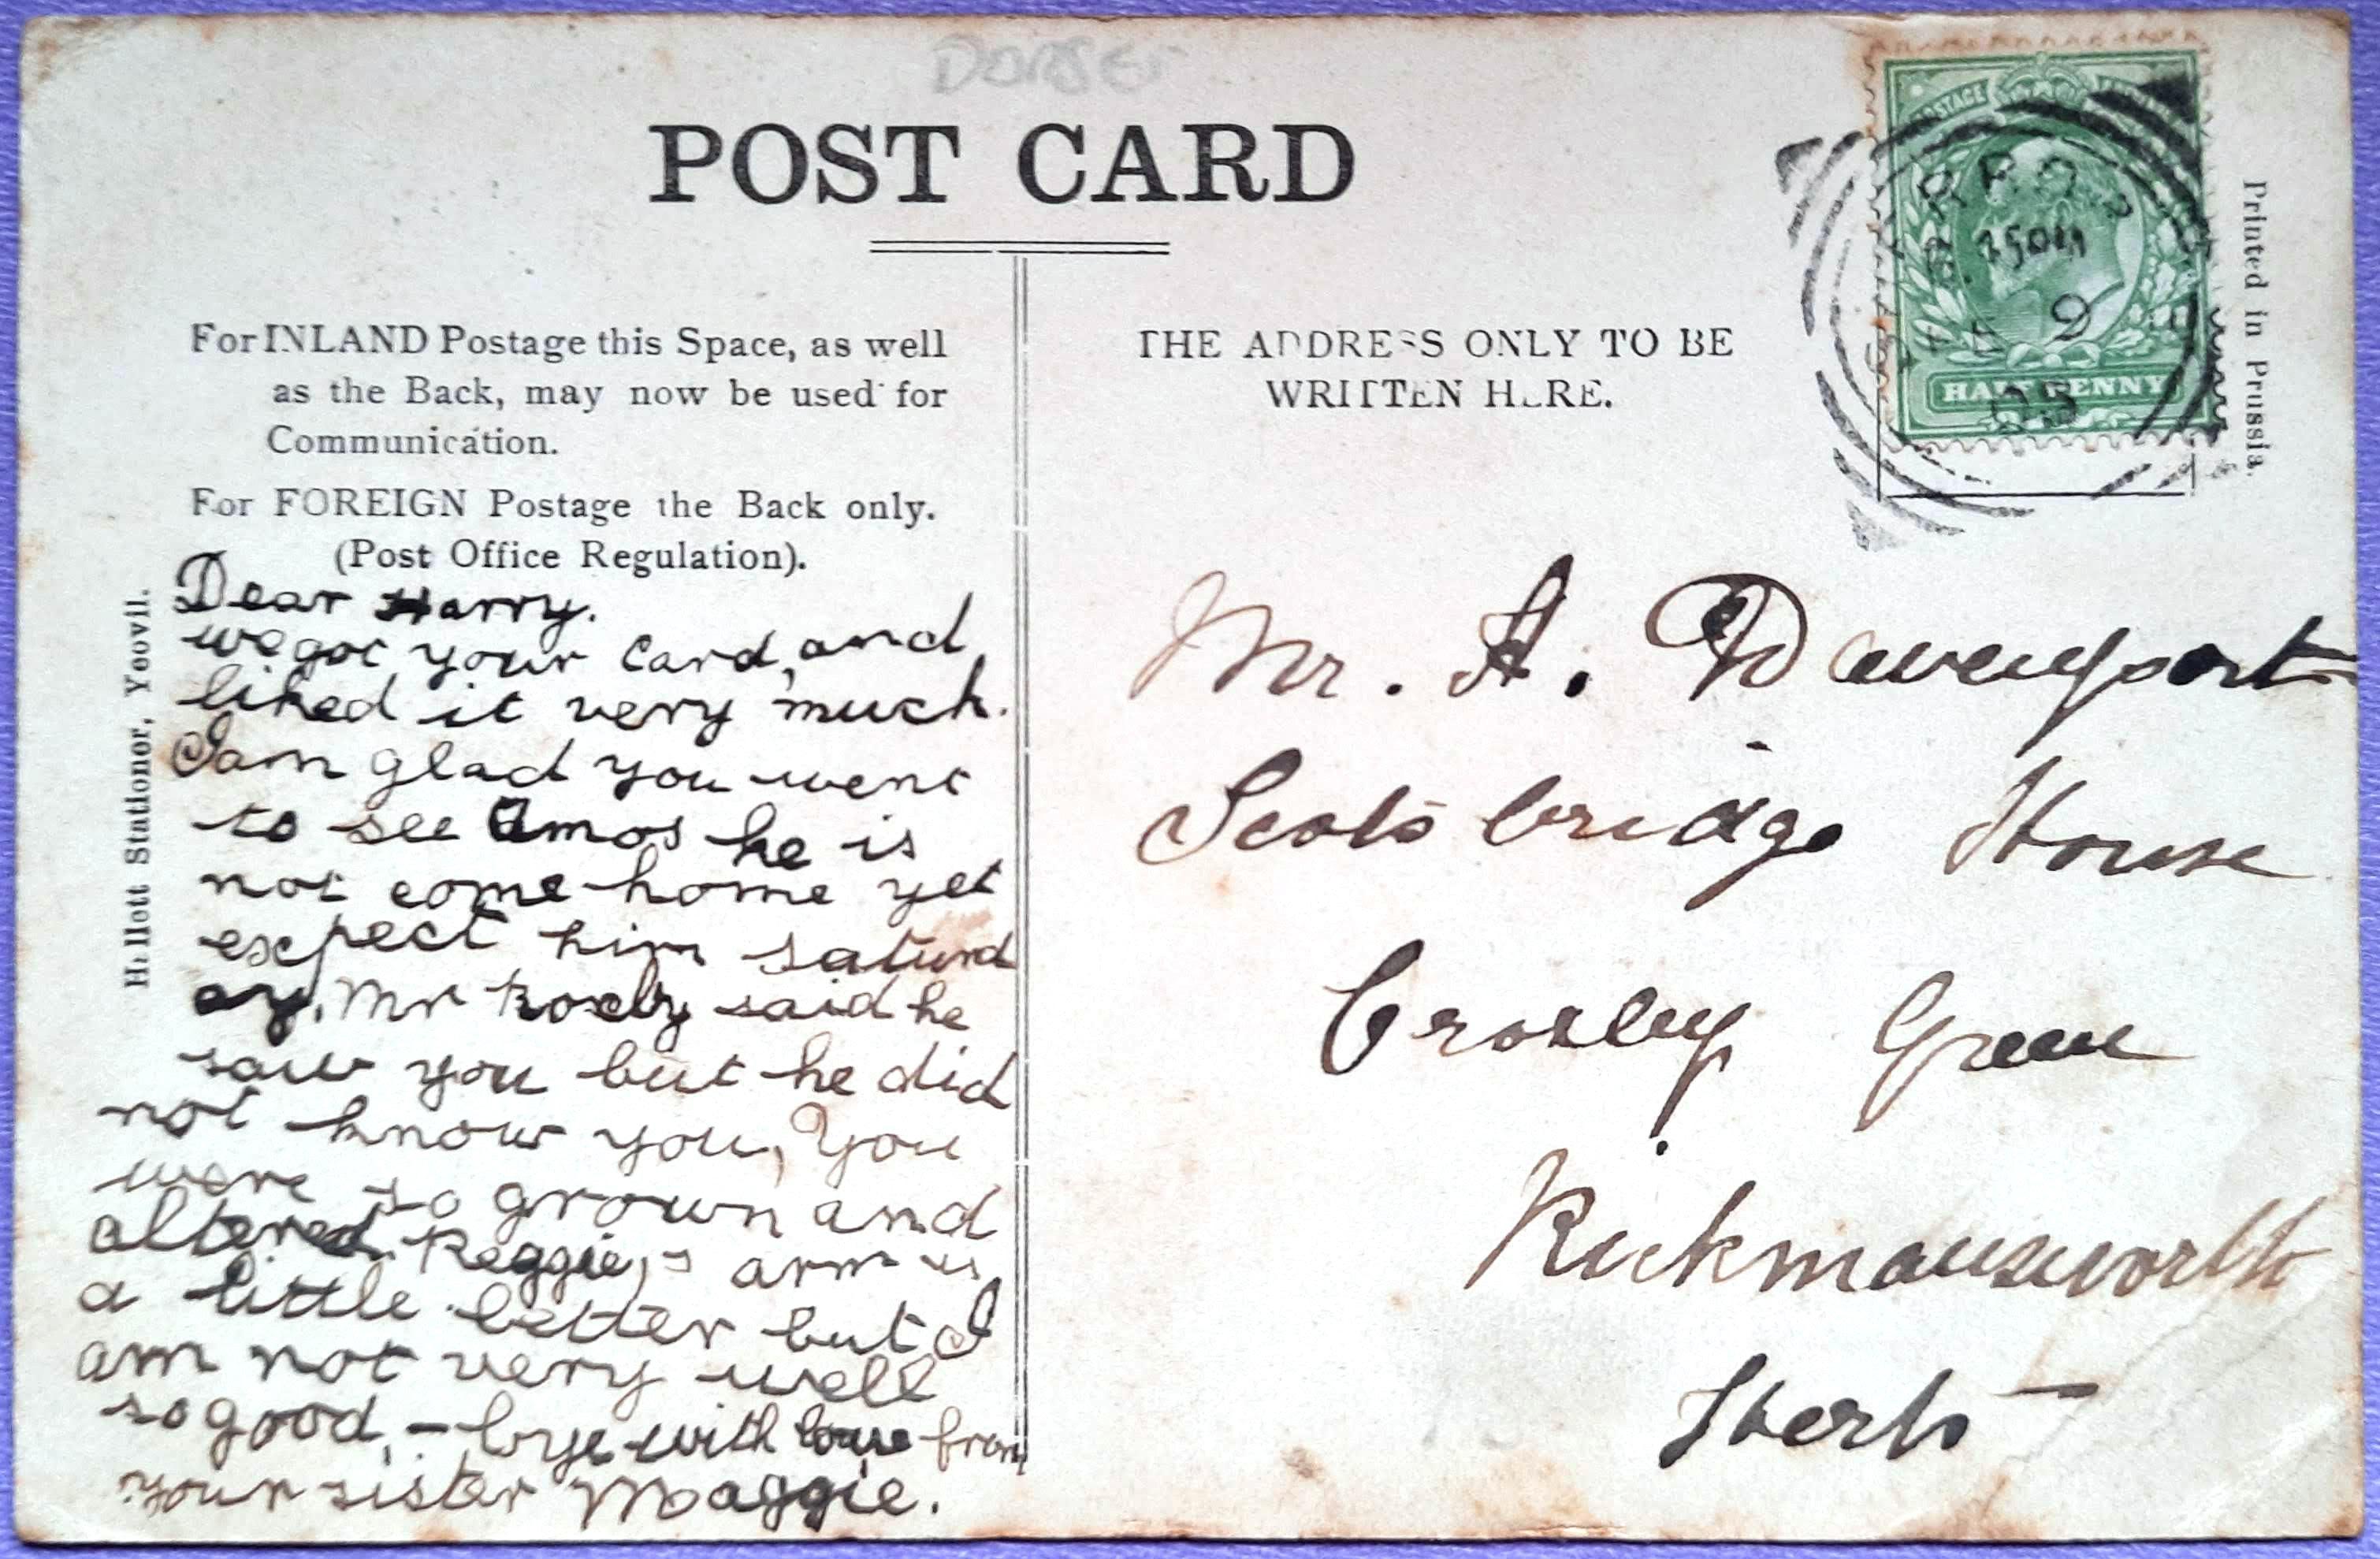 Dorset
POST CARD
For INLAND Postage this Space, as well
as the Back, may now be used for
Communication.
For FOREIGN Postage the Back only.
(Post Office Regulation).
Hillott Stationer, Yeovil.
Dear Harry.
we got your card, and
liked it very much.
I am glad you went
to see Amos he is
not come home yet
expect him saturd
ay, Mr said he
saw you but he did
not know you, You
were so grown and
altered. Reggie,s arm is
a little better but I
am not very well
so good,-bye with love from
your sister Maggie.
THE ADDRESS ONLY TO BE
WRITTEN HERE.
POSTAGE
HALFPENNY
9
Printed in Prussia.
Mr. A. Davenport
Scotsbridge House
Croxley Green
Rickmansworth
Herts